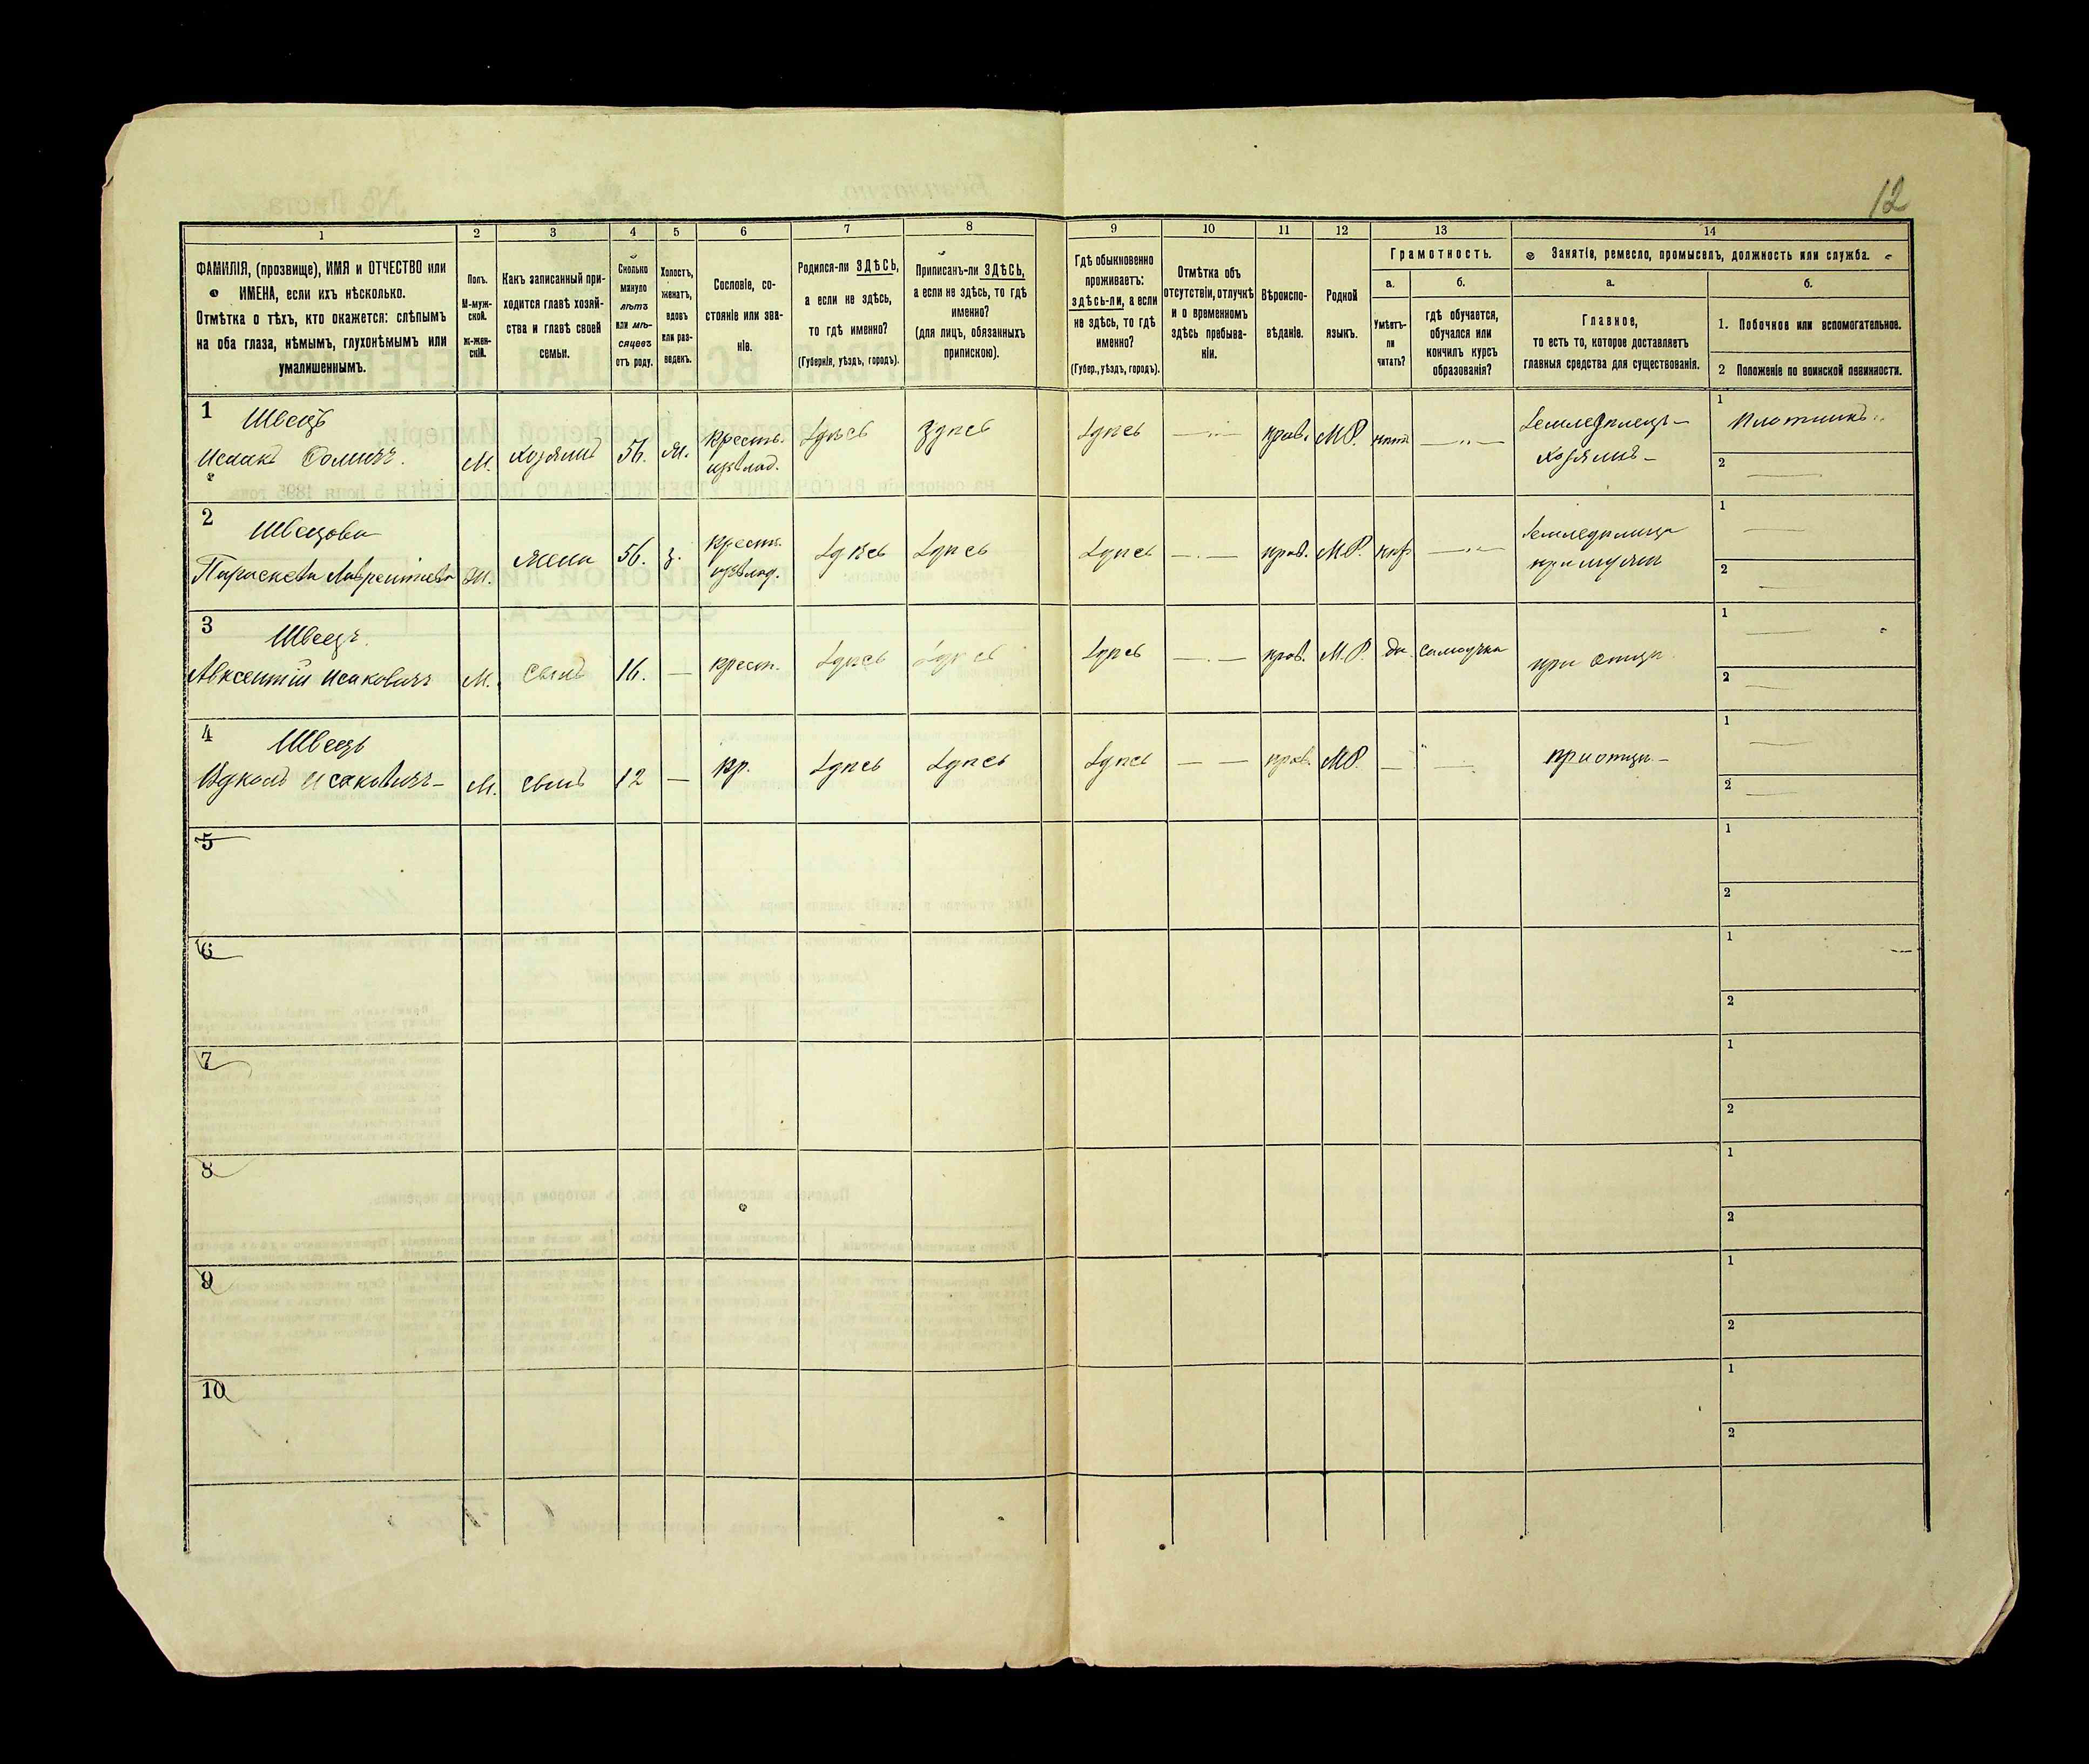 12
1 2 3 4 5 6 7 8 9 10 11 12 13 14
ФАМИЛІЯ, (прозвище), ИМЯ и ОТЧЕСТВО или
ИМЕНА, если ихъ нѣсколько.
Отмѣтка о тѣхъ, кто окажется: слѣпымъ
на оба глаза, нѣмымъ, глухонѣмымъ или
умалишеннымъ.
Полъ.
М-муж-
ской.
Ж-жен-
скій.
Какъ записанный при-
ходится главѣ хозяй-
ства и главѣ своей
семьи.
Сколько
минуло
лѣтъ
или мѣ-
сяцевъ
отъ роду.
Холостъ,
женатъ,
вдовъ
или раз-
веденъ.
Сословіе, со-
стояніе или зва-
ніе.
Родился-ли ЗДѢСЬ,
а если не здѣсь,
то гдѣ именно?
(Губернія, уѣздъ, городъ).
Приписанъ-ли ЗДѢСЬ,
а если не здѣсь, то гдѣ
именно?
(для лицъ, обязанныхъ
припискою).
Гдѣ обыкновенно
проживаетъ:
здѣсь-ли, а если
не здѣсь, то гдѣ
именно?
(Губер., уѣздъ, городъ).
Отмѣтка объ
отсутствіи, отлучкѣ
и о временномъ
здѣсь пребыва-
ніи.
Вѣроиспо-
вѣданіе.
Родной
языкъ.
Грамотность.
а.
Умѣетъ-
ли
читать?
б.
гдѣ обучается,
обучался или
кончилъ курсъ
образованія?
Занятіе, ремесло, промыселъ, должность или служба.
а.
Главное,
то есть то, которое доставляетъ
главныя средства для существованія.
б.
1. Побочное или вспомогательное.
2 Положеніе по воинской повинности.
1 Швецъ
Исаакъ М. Хозяинъ 56. ж. крест. Здѣсь Здѣсь Здѣсь прав. М.Р. нѣтъ Земледѣлецъ-
Хозяинъ-
1 Плотникъ
2
2 Швецова
Параскева Лаврентьева Ж. жена 56. з. крест. Здѣсь Здѣсь Здѣсь прав. М.Р. Земледѣлица
при мужѣ
1
2
3 Швецъ.
Авксентій Исаковичъ М. сынъ 16. — крест. Здѣсь Здѣсь Здѣсь прав. М.Р. да самоучка при отцѣ
1
2
4 Швецъ
Исаковичъ- М. сынъ 12 — кр. Здѣсь Здѣсь Здѣсь прав. М.Р. — при отцѣ-
1
2
5
1
2
6
1
2
7
1
2
8
1
2
9
1
2
10
1
2